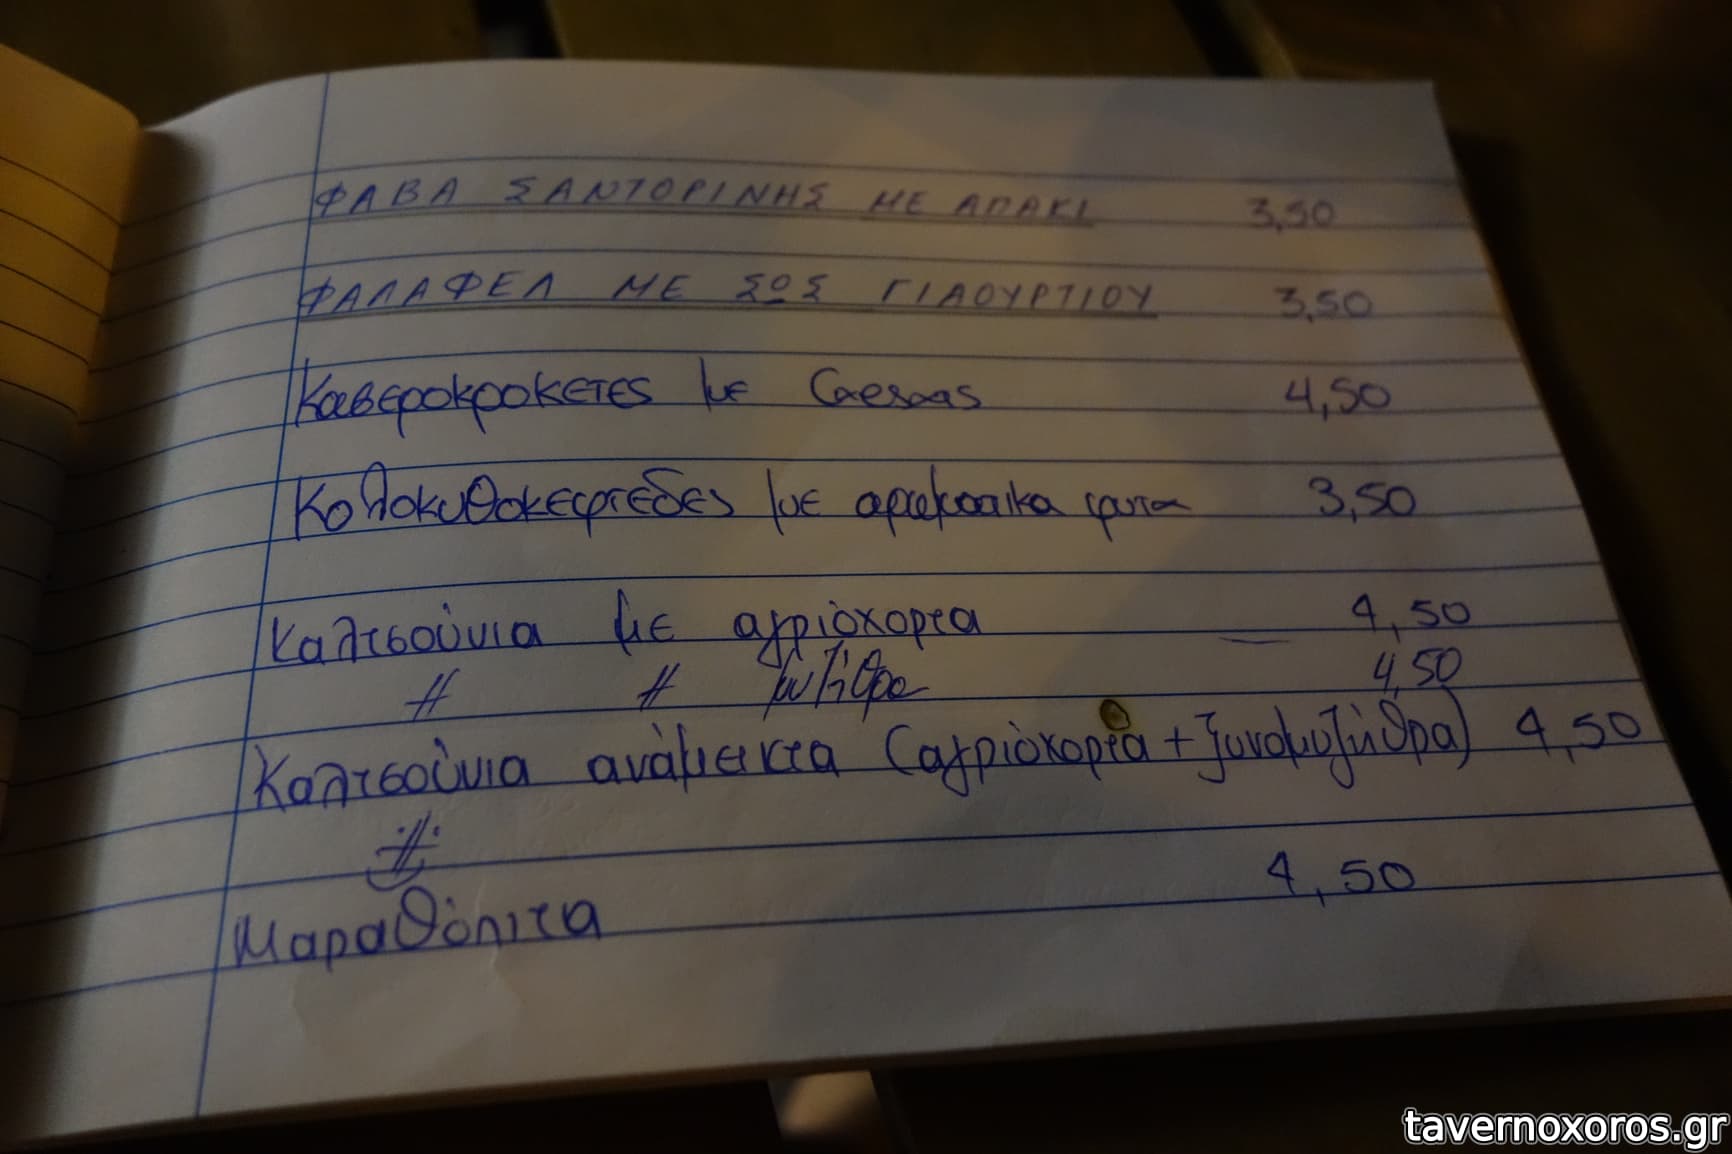 ΦΑΒΑ ΣΑΝΤΟΡΙΝΗΣ ΜΕ ΑΠΑΚΙ 3,50
ΦΑΛΑΦΕΛ ΜΕ ΣΩΣ ΓΙΑΟΥΡΤΙΟΥ 3,50
Καβεροκροκετες με Caesars 4,50
Κολοκυθοκεφτεδες με αρωματικα φυτα 3,50
Καλτσούνια με αγριόχορτα 4,50
〃 〃 μυζήθρα 4,50
Καλτσούνια ανάμεικτα (αγριόχορτα + ξυνομυζήθρα) 4,50
Μαραθόπιτα 4,50
tavernoxoros.gr